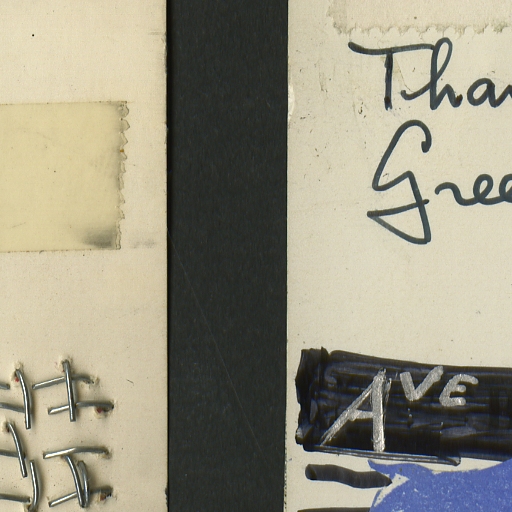 Than
Gree
AVE